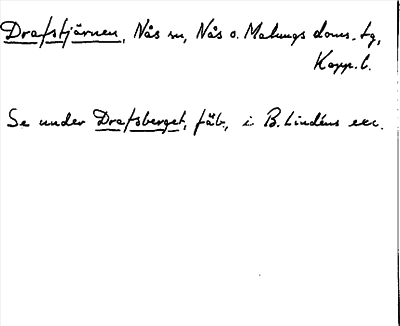 Drafstjärnen, Nås sn, Nås o. Malungs doms. tg,
Kopp. l.
Se under Drafsberget, fäb, i B. Lindéns exc.